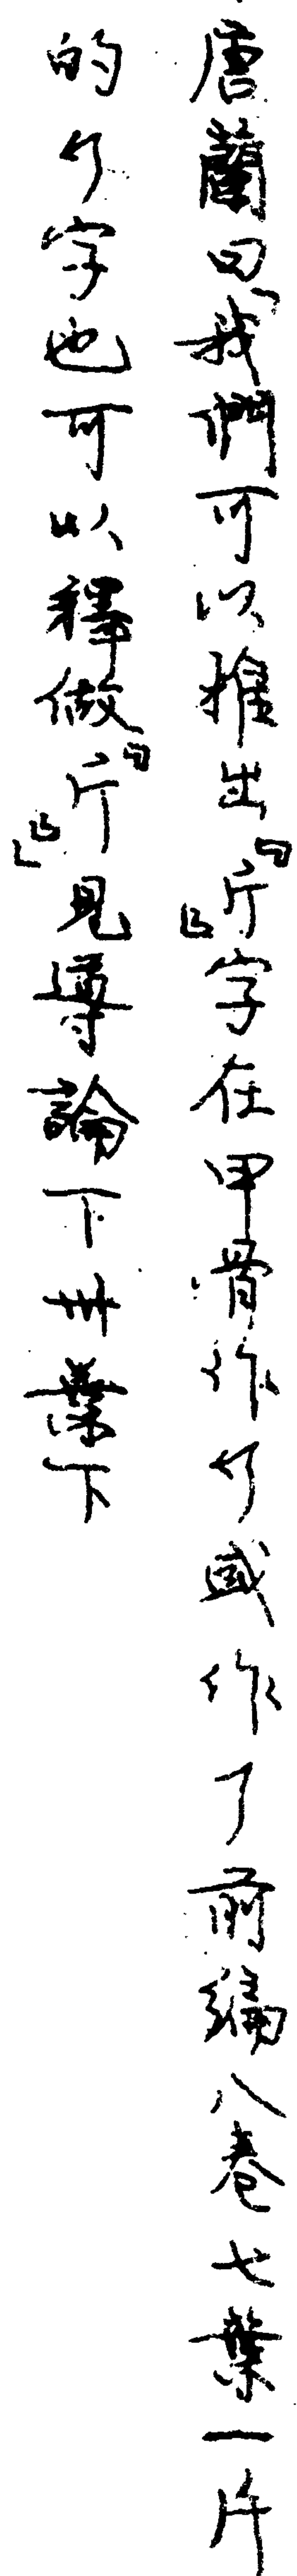 唐蘭曰「我們可以推出『斤』字在甲骨作ㄣ或作㇆前編八卷七葉一片
的ㄣ字也可以釋做『斤』」見導論下卅葉下